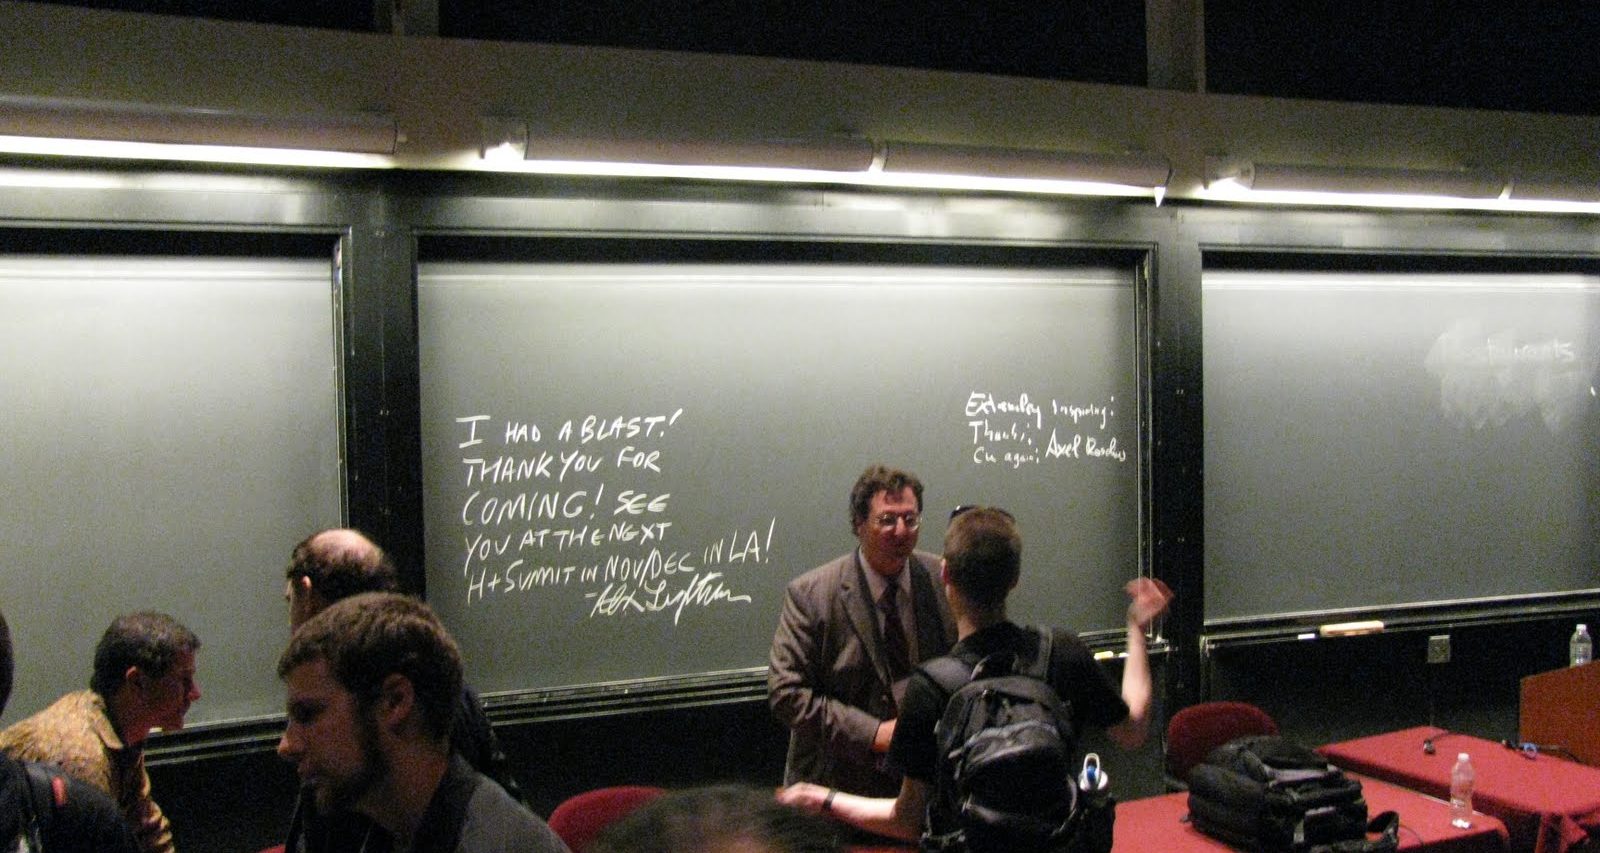 I HAD A BLAST!
THANK YOU FOR
COMING! SEE
YOU AT THE NEXT
H+ SUMMIT IN NOV/DEC IN LA!
-Alex
Extremley inspiring!
Thanks!
Cu again! Axel